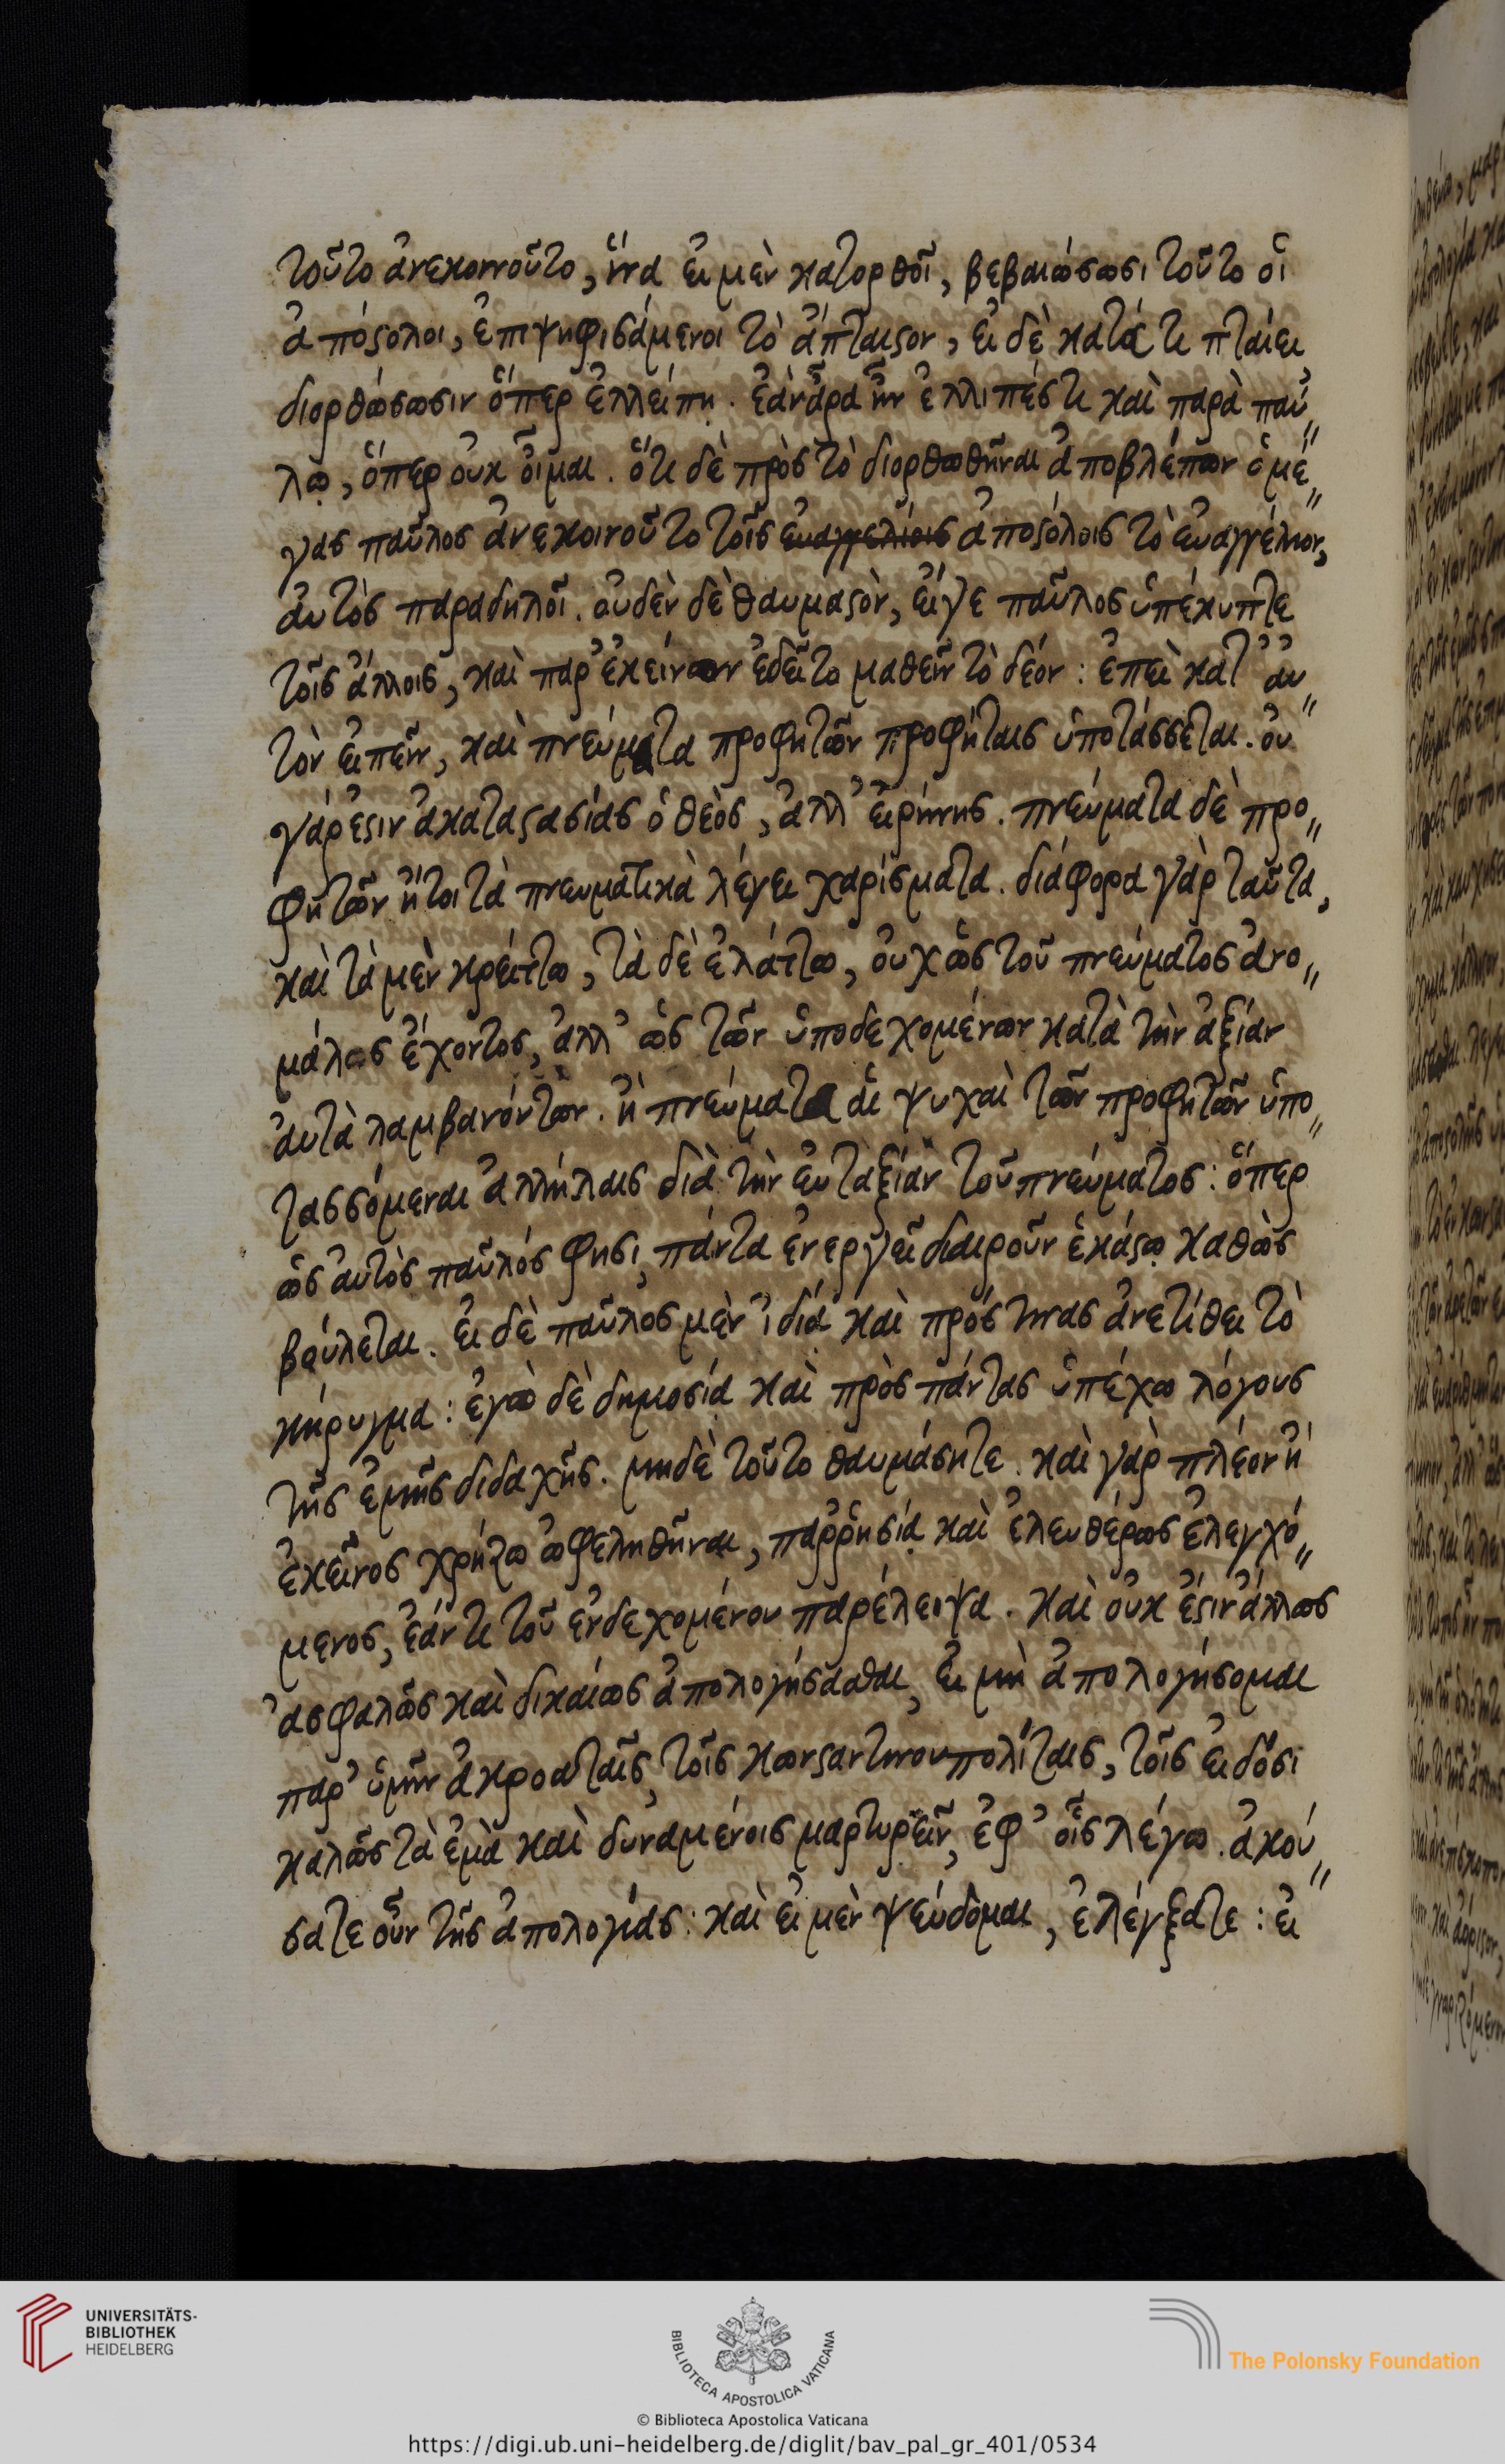 τοῦτο ἀνεκοινοῦτο, ἵνα εἰ μὲν κατορθοῖ, βεβαιώσωσι τοῦτο οἱ
ἀπόστολοι, ἐπιψηφισάμενοι τὸ ἄπταιστον, εἰ δὲ κατά τι πταίει
διορθώσωσιν ὅπερ ἐλλείπῃ. ἐὰν ἄρα ἦν ἐλλιπές τι καὶ παρὰ παύ„
λῳ, ὅπερ οὐκ οἶμαι. ὅτι δὲ πρὸς τὸ διορθωθῆναι ἀποβλέπων ὁ μέ„
γας παῦλος ἀνεκοινοῦτο τοῖς εὐαγγελίοις ἀποστόλοις τὸ εὐαγγέλιον,
αὐτὸς παραδηλοῖ. οὐδὲν δὲ θαυμαστὸν, εἴγε παῦλος ὑπέκυπτε
τοῖς ἄλλοις, καὶ παρ' ἐκείνων ἐδεῖτο μαθεῖν τὸ δέον: ἐπεὶ κατ' αὐ„
τὸν εἰπεῖν, καὶ πνεύματα προφητῶν προφήταις ὑποτάσσεται. οὐ
γάρ ἐστιν ἀκαταστασίας ὁ θεὸς, ἀλλ' εἰρήνης. πνεύματα δὲ προ„
φητῶν ἤτοι τὰ πνευματικὰ λέγει χαρίσματα. διάφορα γὰρ ταῦτα,
καὶ τὰ μὲν κρείττω, τὰ δὲ ἐλάττω, οὐχ ὡς τοῦ πνεύματος ἀνο„
μάλως ἔχοντος, ἀλλ' ὡς τῶν ὑποδεχομένων κατὰ τὴν ἀξίαν
αὐτὰ λαμβανόντων. ἢ πνεύματα αἱ ψυχαὶ τῶν προφητῶν ὑπο„
τασσόμεναι ἀλλήλαις διὰ τὴν εὐταξίαν τοῦ πνεύματος: ὅπερ
ὡς αὐτὸς παῦλός φησι, πάντα ἐνεργεῖ διαιροῦν ἑκάστῳ καθὼς
βούλεται. εἰ δὲ παῦλος μὲν ἰδίᾳ καὶ πρός τινας ἀνετίθει τὸ
κήρυγμα: ἐγὼ δὲ δημοσίᾳ καὶ πρὸς πάντας ὑπέχω λόγους
τῆς ἐμῆς διδαχῆς. μηδὲ τοῦτο θαυμάσητε. καὶ γὰρ πλέον ἢ
ἐκεῖνος χρήζω ὠφεληθῆναι, παῤῥησίᾳ καὶ ἐλευθέρως ἐλεγχό„
μενος, ἐάν τι τοῦ ἐνδεχομένου παρέλειψα. καὶ οὐκ ἔστιν ἄλλως
ἀσφαλῶς καὶ δικαίως ἀπολογήσασθαι, εἰ μὴ ἀπολογήσομαι
παρ' ὑμῖν ἀκροαταῖς, τοῖς κωνσταντινουπολίταις, τοῖς εἰδόσι
καλῶς τὰ ἐμὰ καὶ δυναμένοις μαρτυρεῖν, ἐφ' οἷς λέγω. ἀκού„
σατε οὖν τῆς ἀπολογίας: καὶ εἰ μὲν ψεύδομαι, ἐλέγξατε: εἰ
UNIVERSITÄTS-
BIBLIOTHEK
HEIDELBERG
BIBLIOTECA APOSTOLICA VATICANA
The Polonsky Foundation
© Biblioteca Apostolica Vaticana
https://digi.ub.uni-heidelberg.de/diglit/bav_pal_gr_401/0534